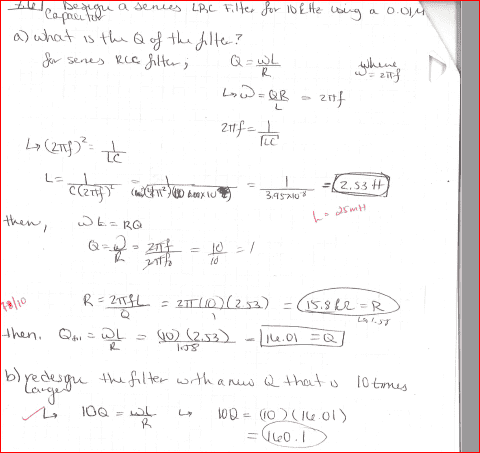 Design a series LRC Filter for 10 kHz using a 0.01μ
Capacitor
a) what is the Q of the filter?
for series RLC filter; Q = ωL/R where ω = 2πf
↳ ω = QR/L = 2πf
2πf = 1/√LC
↳ (2πf)² = 1/LC
L = 1/C(2πf)² = = 1/3.95x10 = 2.53 H
L = 25mH
then, ωL = RQ
Q = ω/R = 2πf/2πf = 10/10 = 1
R = 2πfL/Q = 2π(10)(2.53)/1 = 15.8 kΩ = R
8/10
then. Q = ωL/R = (10)(2.53)/1.58 = 16.01 = Q
b) redesign the filter with a new Q that is 10 times
Larger
↳ 10Q = ωL/R ↳ 10Q = (10)(16.01)
= 160.1